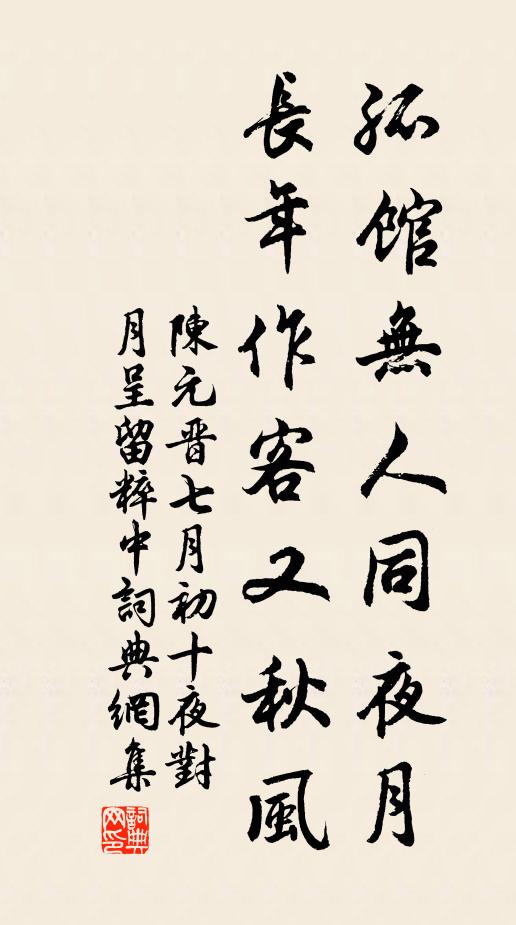 孤館無人同夜月
長年作客又秋風
陳元晉七月初十夜對
月呈留粹中詞典網集
詞典网印